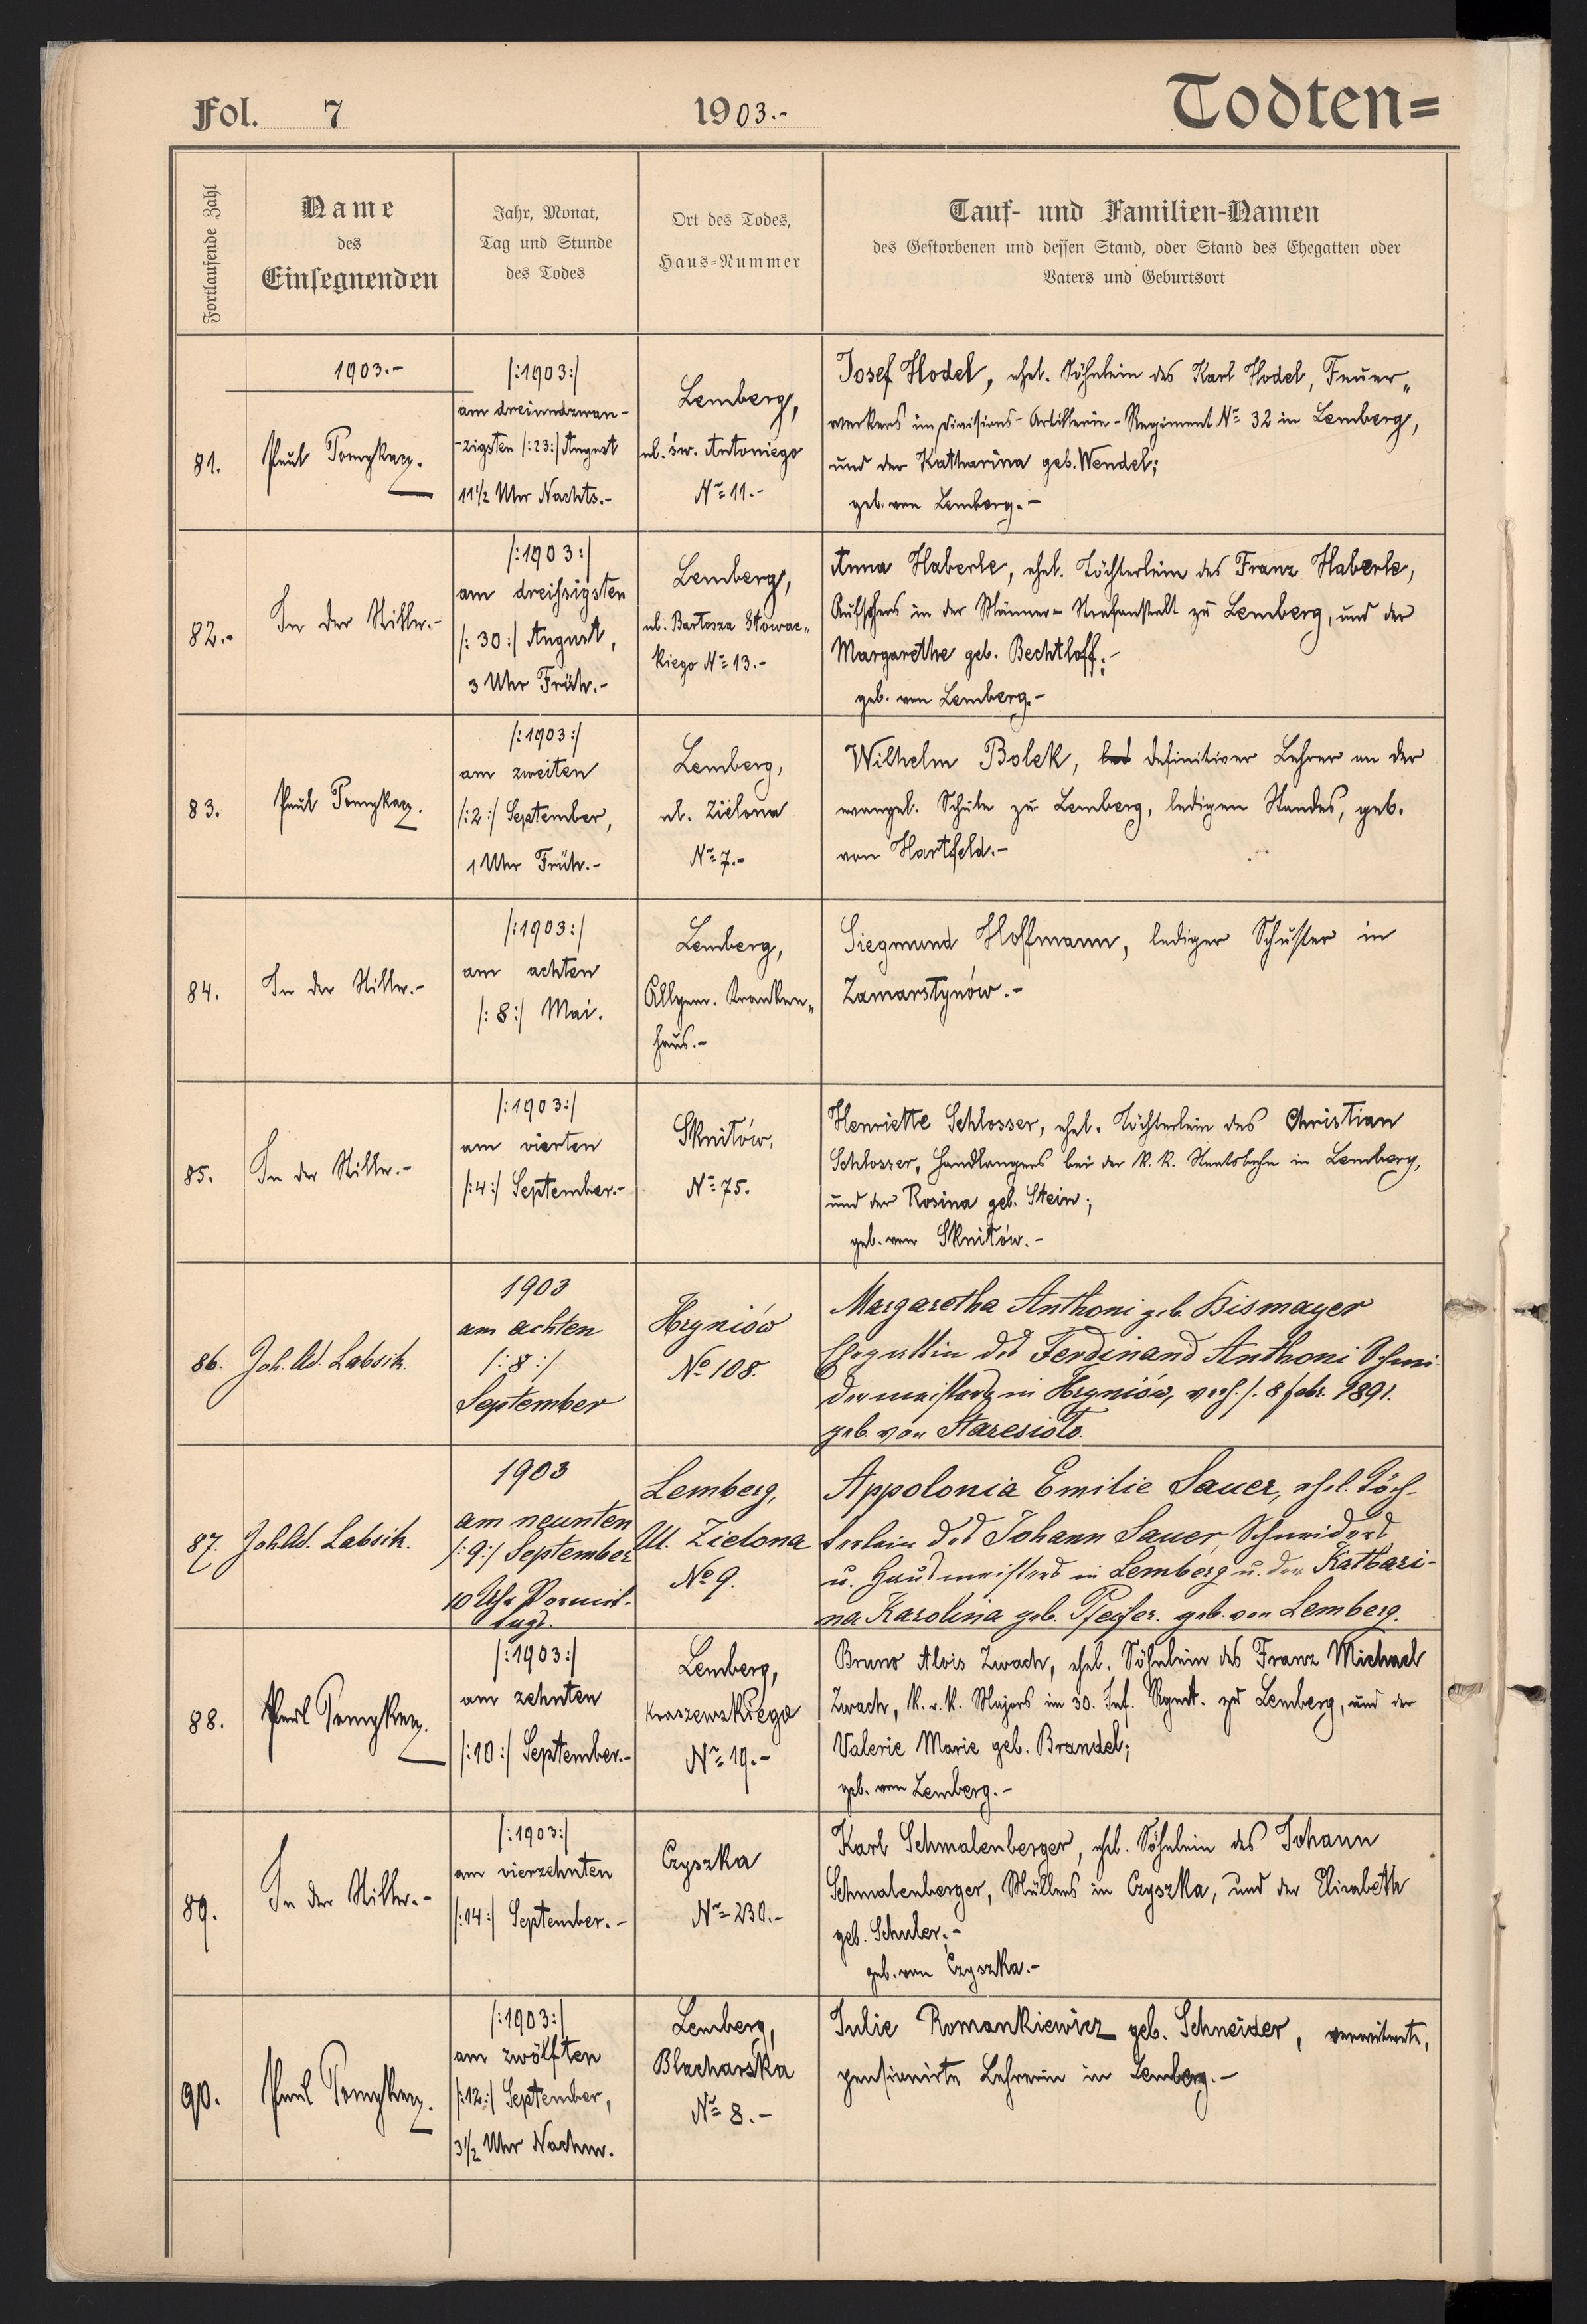 Fol. 7
1903.-
Todten=
Fortlaufende Zahl
Name
des
Einsegnenden
Jahr, Monat,
Tag und Stunde
des Todes
Ort des Todes,
Haus-Nummer
Tauf- und Familien-Namen
des Gestorbenen und dessen Stand, oder Stand des Ehegatten oder
Vaters und Geburtsort
1903.-
81.
Paul
/:1903:/
am dreiundzwan-
-zigsten /:23:/ August
11 1/2 Uhr Nachts.-
Lemberg,
ul. św. Antoniego
No 11.-
Josef Hodel, ehel. Söhnlein des Karl Hodel, Feuer„
werkers im Divisions-Artillerie-Regiment No 32 in Lemberg,
und der Katharina geb. Wendel;
geb. von Lemberg.-
82.-
In der Stille.-
/:1903:/
am dreißigsten
/:30:/ August,
3 Uhr Früh.-
Lemberg,
ul. Bartosza Głowac„
kiego No 13.-
Anna Haberle, ehel. Töchterlein des Franz Haberle,
Aufsehers in der Männer-Strafanstalt zu Lemberg, und der
Margarethe geb. Bechtloff;-
geb. von Lemberg.-
83.
Paul
/:1903:/
am zweiten
/:2:/ September,
1 Uhr Früh.-
Lemberg,
ul. Zielona
No 7.-
Wilhelm Bolek, definitiver Lehrer an der
evangel. Schule zu Lemberg, ledigen Standes, geb.
von Hartfeld.-
84.
In der Stille.-
/:1903:/
am achten
/:8:/ Mai.
Lemberg,
Allgem. Kranken„
haus.-
Siegmund Hoffmann, lediger Schuster in
Zamarstynów.-
85.
In der Stille.-
/:1903:/
am vierten
/:4:/ September.-
Skniłów,
No 75.
Henriette Schlosser, ehel. Töchterlein des Christian
Schlosser, Handlangers bei der k. k. Staatsbahn in Lemberg,
und der Rosina geb. Stein;
geb. von Skniłów.-
86.
Joh. Ad. Labsik.
1903
am achten
/:8:/
September
Hryniów
No 108.
Margaretha Anthoni geb. Bismayer
Ehegattin des Ferdinand Anthoni Schmi-
in Hryniów, 8 febr. 1891.
geb. von Staresioło.
87.
Joh. Ad. Labsik.
1903
am neunten
/:9:/ September
10 Uhr Vormit-
tags.
Lemberg,
Ul. Zielona
No 9.
Appolonia Emilie Sauer, ehel. Töch-
terlein des Johann Sauer, Schneiders
u. Hausmeisters in Lemberg u. der Kathari-
na Karolina geb. Pfeifer. geb. von Lemberg.
88.
Paul
/:1903:/
am zehnten
/:10:/ September.-
Lemberg,
Kraszewskiego
No 19.-
Bruno Alois Zwach, ehel. Söhnlein des Franz Michael
Zwach, k. u. k. Majors im 30. Inf. Rgmt. zu Lemberg, und der
Valerie Marie geb. Brandel;
geb. von Lemberg.-
89.
In der Stille.-
/:1903:/
am vierzehnten
/:14:/ September.-
Czyszka
No 230.-
Karl Schmalenberger, ehel. Söhnlein des Johann
Schmalenberger, Müllers in Czyszka, und der Elisabeth
geb. Schuler;-
geb. von Czyszka.-
90.
Paul
/:1903:/
am zwölften
/:12:/ September,
3 1/2 Uhr Nachm.
Lemberg,
Blacharska
No 8.-
Julie Romankiewicz geb. Schneider, verwitwete,
pensionirte Lehrerin in Lemberg.-